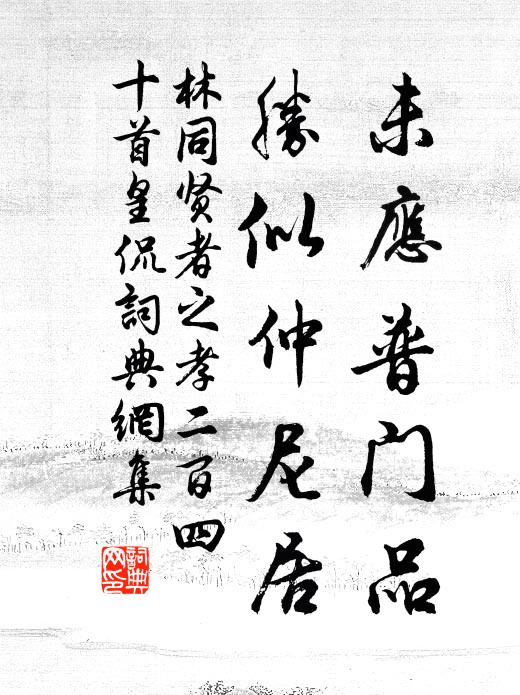 未應普門品
勝似仲尼居
林同贤者之孝二百四
十首皇侃詞典網集
詞典
网印